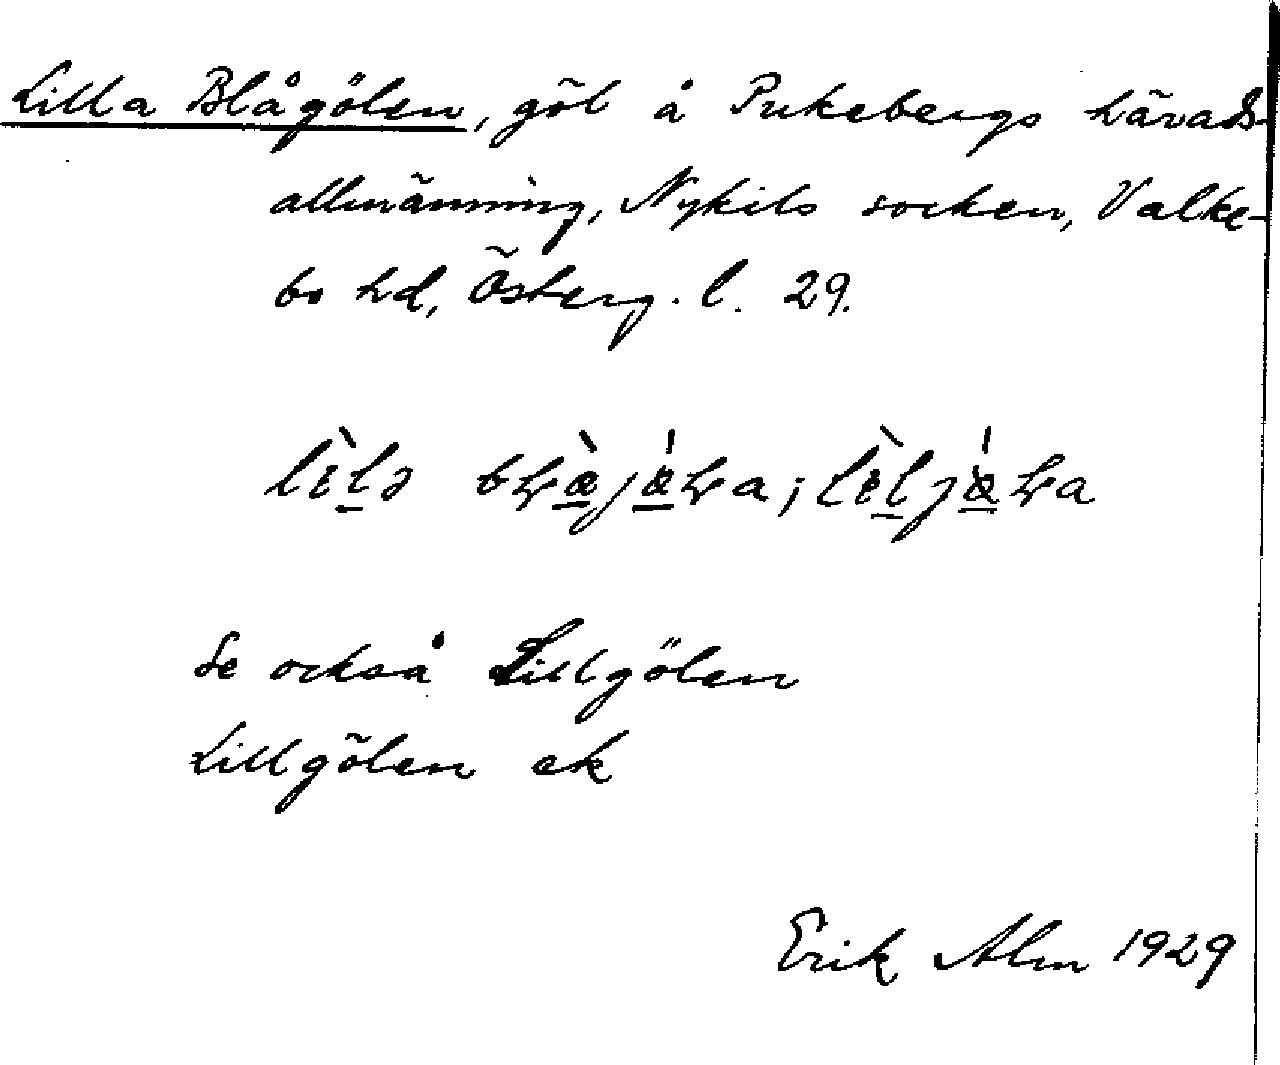 Lilla Blågölen, göl å Pukebergs härads-
allmänning, Nykils socken, Valke-
bo hd, Österg. l. 29.
Se också Lillgölen
Lillgölen ek
Erik Alm 1929